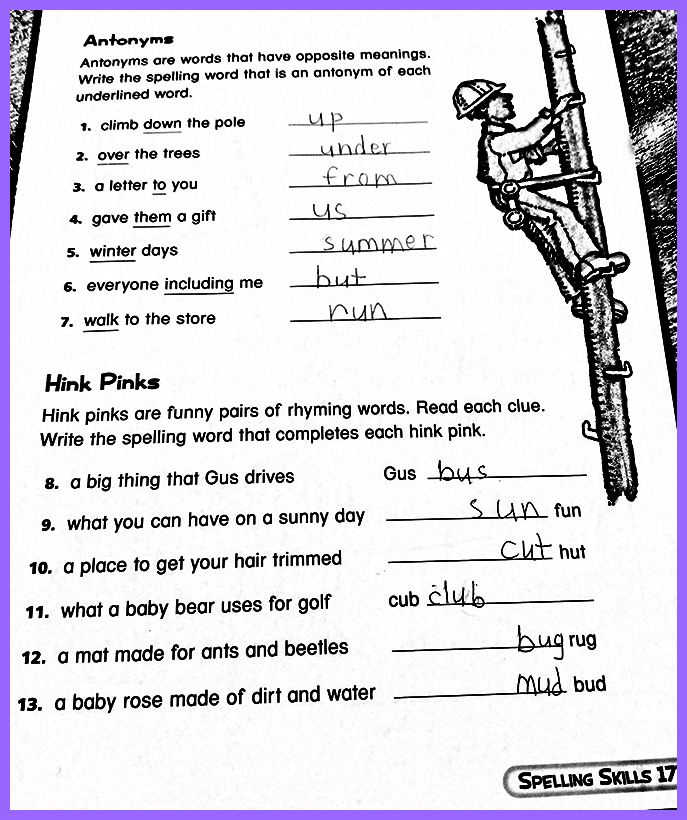 Antonyms
Antonyms are words that have opposite meanings.
Write the spelling word that is an antonym of each
underlined word.
1. climb down the pole up
2. over the trees under
3. a letter to you from
4. gave them a gift us
5. winter days summer
6. everyone including me but
7. walk to the store run
Hink Pinks
Hink pinks are funny pairs of rhyming words. Read each clue.
Write the spelling word that completes each hink pink.
8. a big thing that Gus drives Gus bus
9. what you can have on a sunny day sun fun
10. a place to get your hair trimmed cut hut
11. what a baby bear uses for golf cub club
12. a mat made for ants and beetles bug rug
13. a baby rose made of dirt and water mud bud
SPELLING SKILLS 17